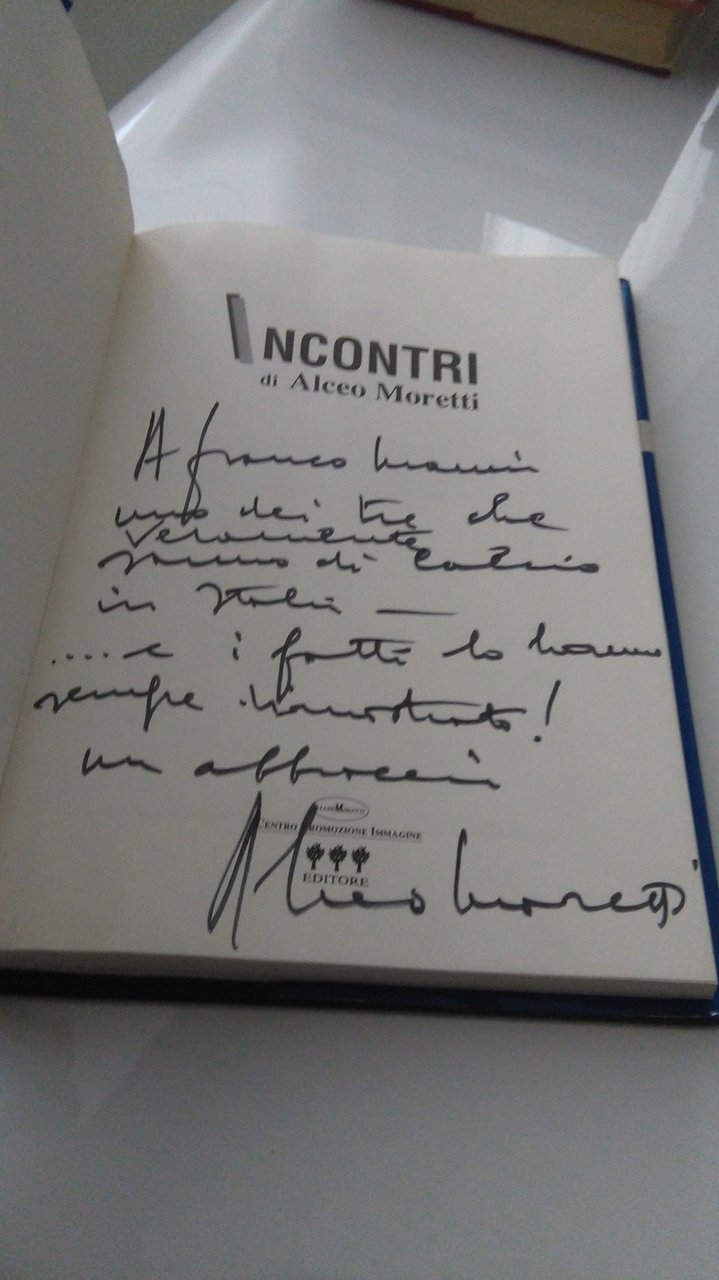 INCONTRI
di Alceo Moretti
A franco
uno dei tre che
veramente
sanno di calcio
in Italia —
....e i fatti lo hanno
sempre dimostrato!
un abbraccio
CENTRO PROMOZIONE IMMAGINE
EDITORE
Alceo Moretti